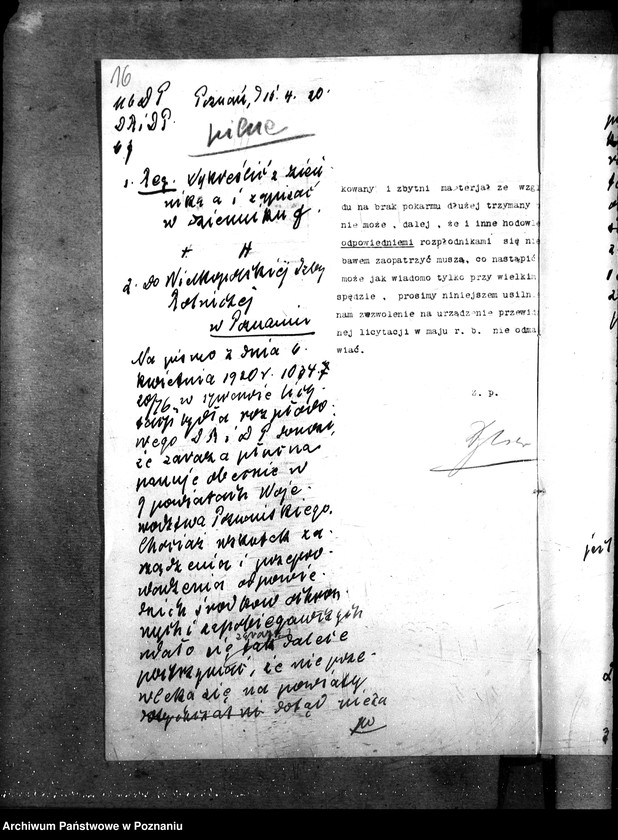 16
Poznań, d 16. 4. 20.
D R i D P.
pilne
1. Reg. Wykreślić z dzien
nika a i zapisać
w Dzienniku g.
2. Do Wielkopolskiej Izby
Rolniczej
w Poznaniu
Na pismo z dnia 6.
kwietnia 1920 r.
w sprawie licy-
tacji bydła rozpłodo-
wego D R i D P donosi,
że zaraza płucna
panuje obecnie w
9 powiatach Woje-
wództwa Poznańskiego.
Chociaż wskutek za-
rządzenia i przepro-
wadzenia odpowie-
dnich środków ochron
nych i zapobiegawczych
udało się zarazę dalece
powstrzymać, że nie prze-
wleka się na powiaty
dotąd nieza
kowany i zbytni materjał ze wzgl
du na brak pokarmu dłużej trzymany
nie może , dalej , że i inne hodowle
odpowiedniemi rozpłodnikami się nie
bawem zaopatrzyć muszą, co nastąpić
może jak wiadomo tylko przy wielkim
spędzie , prosimy niniejszem usiln
nam zezwolenie na urządzenie przewid
nej licytacji w maju r. b. nie odma
wiać.
Z. p.
jest
Archiwum Państwowe w Poznaniu